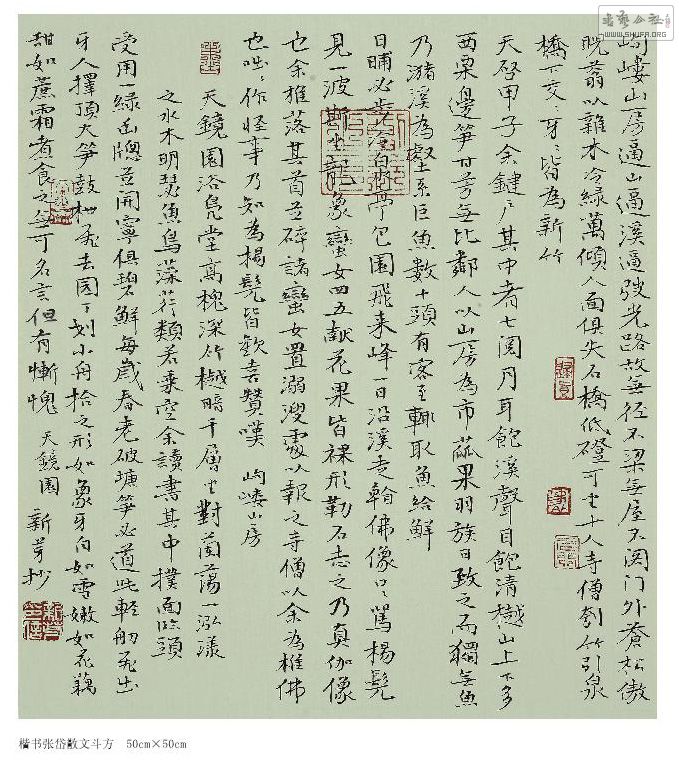 岣嶁山房逼山逼溪逼弢光路故無径不梁無屋不阁门外蒼松傲
睨蓊以雜木冷綠萬傾人面俱失石橋低磴可坐十人寺僧刳竹引泉
橋下交〻牙〻皆為新竹
天啓甲子余鍵〻其中者七阅月耳飽溪聲目飽清樾山上下多
西栗邊笋甘芳無比鄰人以山房為市蓏果羽族日致之而獨無魚
乃瀦溪為壑系巨魚数十頭有客至輒取魚給鮮
日晡必步冷泉亭包園飛来峰一日沿溪走佛像口〻罵楊髡
見一波斯坐龍象蠻女四五献花果皆裸形勒石志之乃真伽像
也余椎落其首並碎諸蠻女置溺溲處以報之寺僧以余為椎佛
也咄〻作怪事乃知為楊髡皆歡喜贊嘆 岣嶁山房
天鏡園浴凫堂高槐深竹樾暗千層坐對蘭蕩一泓漾
之水木明瑟魚鳥藻荇類若乘空余讀書其中撲面临頭
受用一綠幽牕並開寧俱碧鮮每歲春老破塘笋必道此輕舠飛出
牙人擇頂大笋鼓枻飛去园丁划小舟拾之形如象牙白如雪嫩如花藕
甜如蔗霜煮食之無可名言但有慚愧 天鏡園 新芽抄
WWW.SHUFA.ORG
楷书张岱散文斗方 50cm×50cm